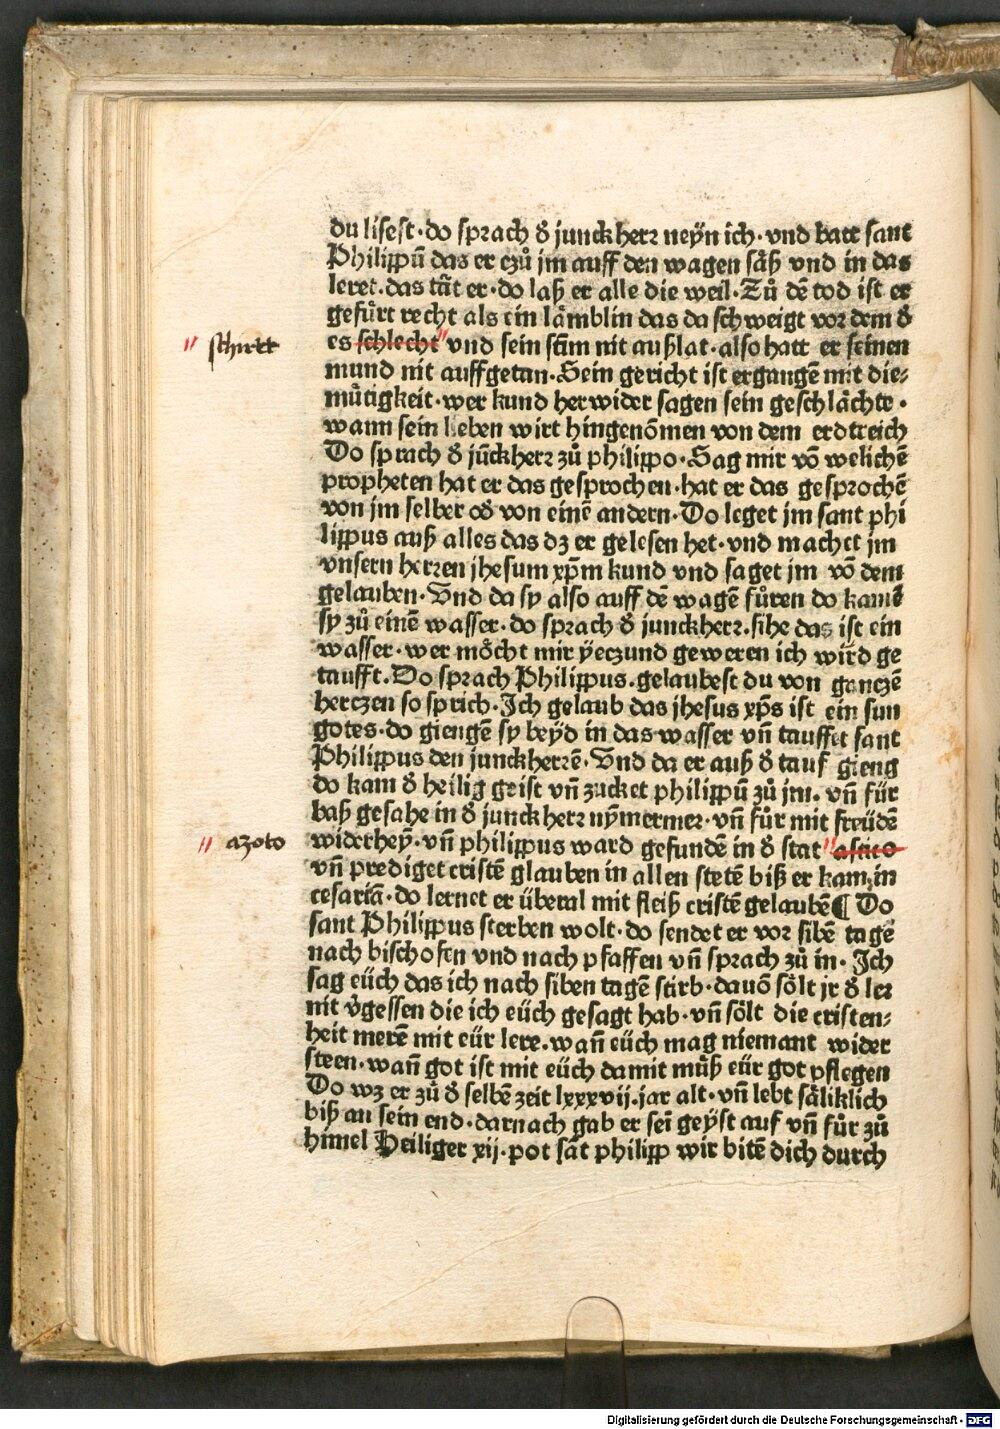 du lisest·do sprach d̕ junckherr neyn ich·vnd batt sant
Philippū das er czů jm auff den wagen säß vnd in das
leret·das tät er·do laß er alle die weil·Zů dē tod ist er
gefürt recht als ein lämblin das da schweigt vor dem d̕
es schlecht" vnd sein stim nit außlat·also hatt er seinen
" schirtt
mund nit auffgetan·Sein gericht ist ergangē mit die⸗
mütigkeit·wer kund herwider sagen sein geschlächte·
wann sein leben wirt hingenōmen von dem erdtreich
Do sprach d̕ jūckherr zů philippo·Sag mir vō welichē
propheten hat er das gesprochen·hat er das gesprochē
von jm selber od̕ von einē andern·Do leget jm sant phi
lippus auß alles das dz er gelesen het·vnd machet jm
vnsern herren jhesum xp̄m kund vnd saget jm vō dem
gelauben·Vnd da sy also auff dē wagē fůren do kamē
sy zů einē wasser·do sprach d̕ junckherr·sihe das ist ein
wasser·wer möcht mir yeczund geweren ich wird ge
taufft·Do sprach Philippus·gelaubest du von ganczē
herczen so sprich·Ich gelaub das jhesus xp̄s ist ein sun
gotes·do giengē sy beyd in das wasser vn̄ tauffet sant
Philippus den junckherrē·Vnd da er auß d̕ tauf gieng
do kam d̕ heilig geist vn̄ zucket philippū zů jm·vn̄ für
baß gesahe in d̕ junckherr nȳmermer·vn̄ fůr mit freüdē
widerheȳ·vn̄ philippus ward gefundē in d̕ stat "astico
" azoto
vn̄ prediget cristē glauben in allen stetē biß er kam in
cesariā·do lernet er überal mit fleiß cristē gelaubē¶ Do
sant Philippus sterben wolt·do sendet er vor sibē tagē
nach bischofen vnd nach pfaffen vn̄ sprach zů in·Ich
sag eüch das ich nach siben tagē stirb·dauō sölt jr d̕ ler
nit v̕gessen die ich eüch gesagt hab·vn̄ sölt die cristen⸗
heit merē mit eür lere·wan̄ eüch mag niemant wider
steen·wan̄ got ist mit eüch damit můß eür got pflegen
Do wz er zů d̕ selbē zeit lxxxvij·jar alt·vn̄ lebt säliklich
biß an sein end·darnach gab er sei geyst auf vn̄ fůr zů
himel Heiliger xij·pot sāt philipp wir bitē dich durch
Digitalisierung gefördert durch die Deutsche Forschungsgemeinschaft - DFG